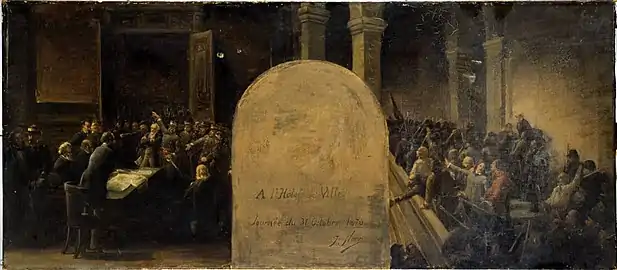 A l'Hôtel de Ville
Journée du 31 Octobre 1870